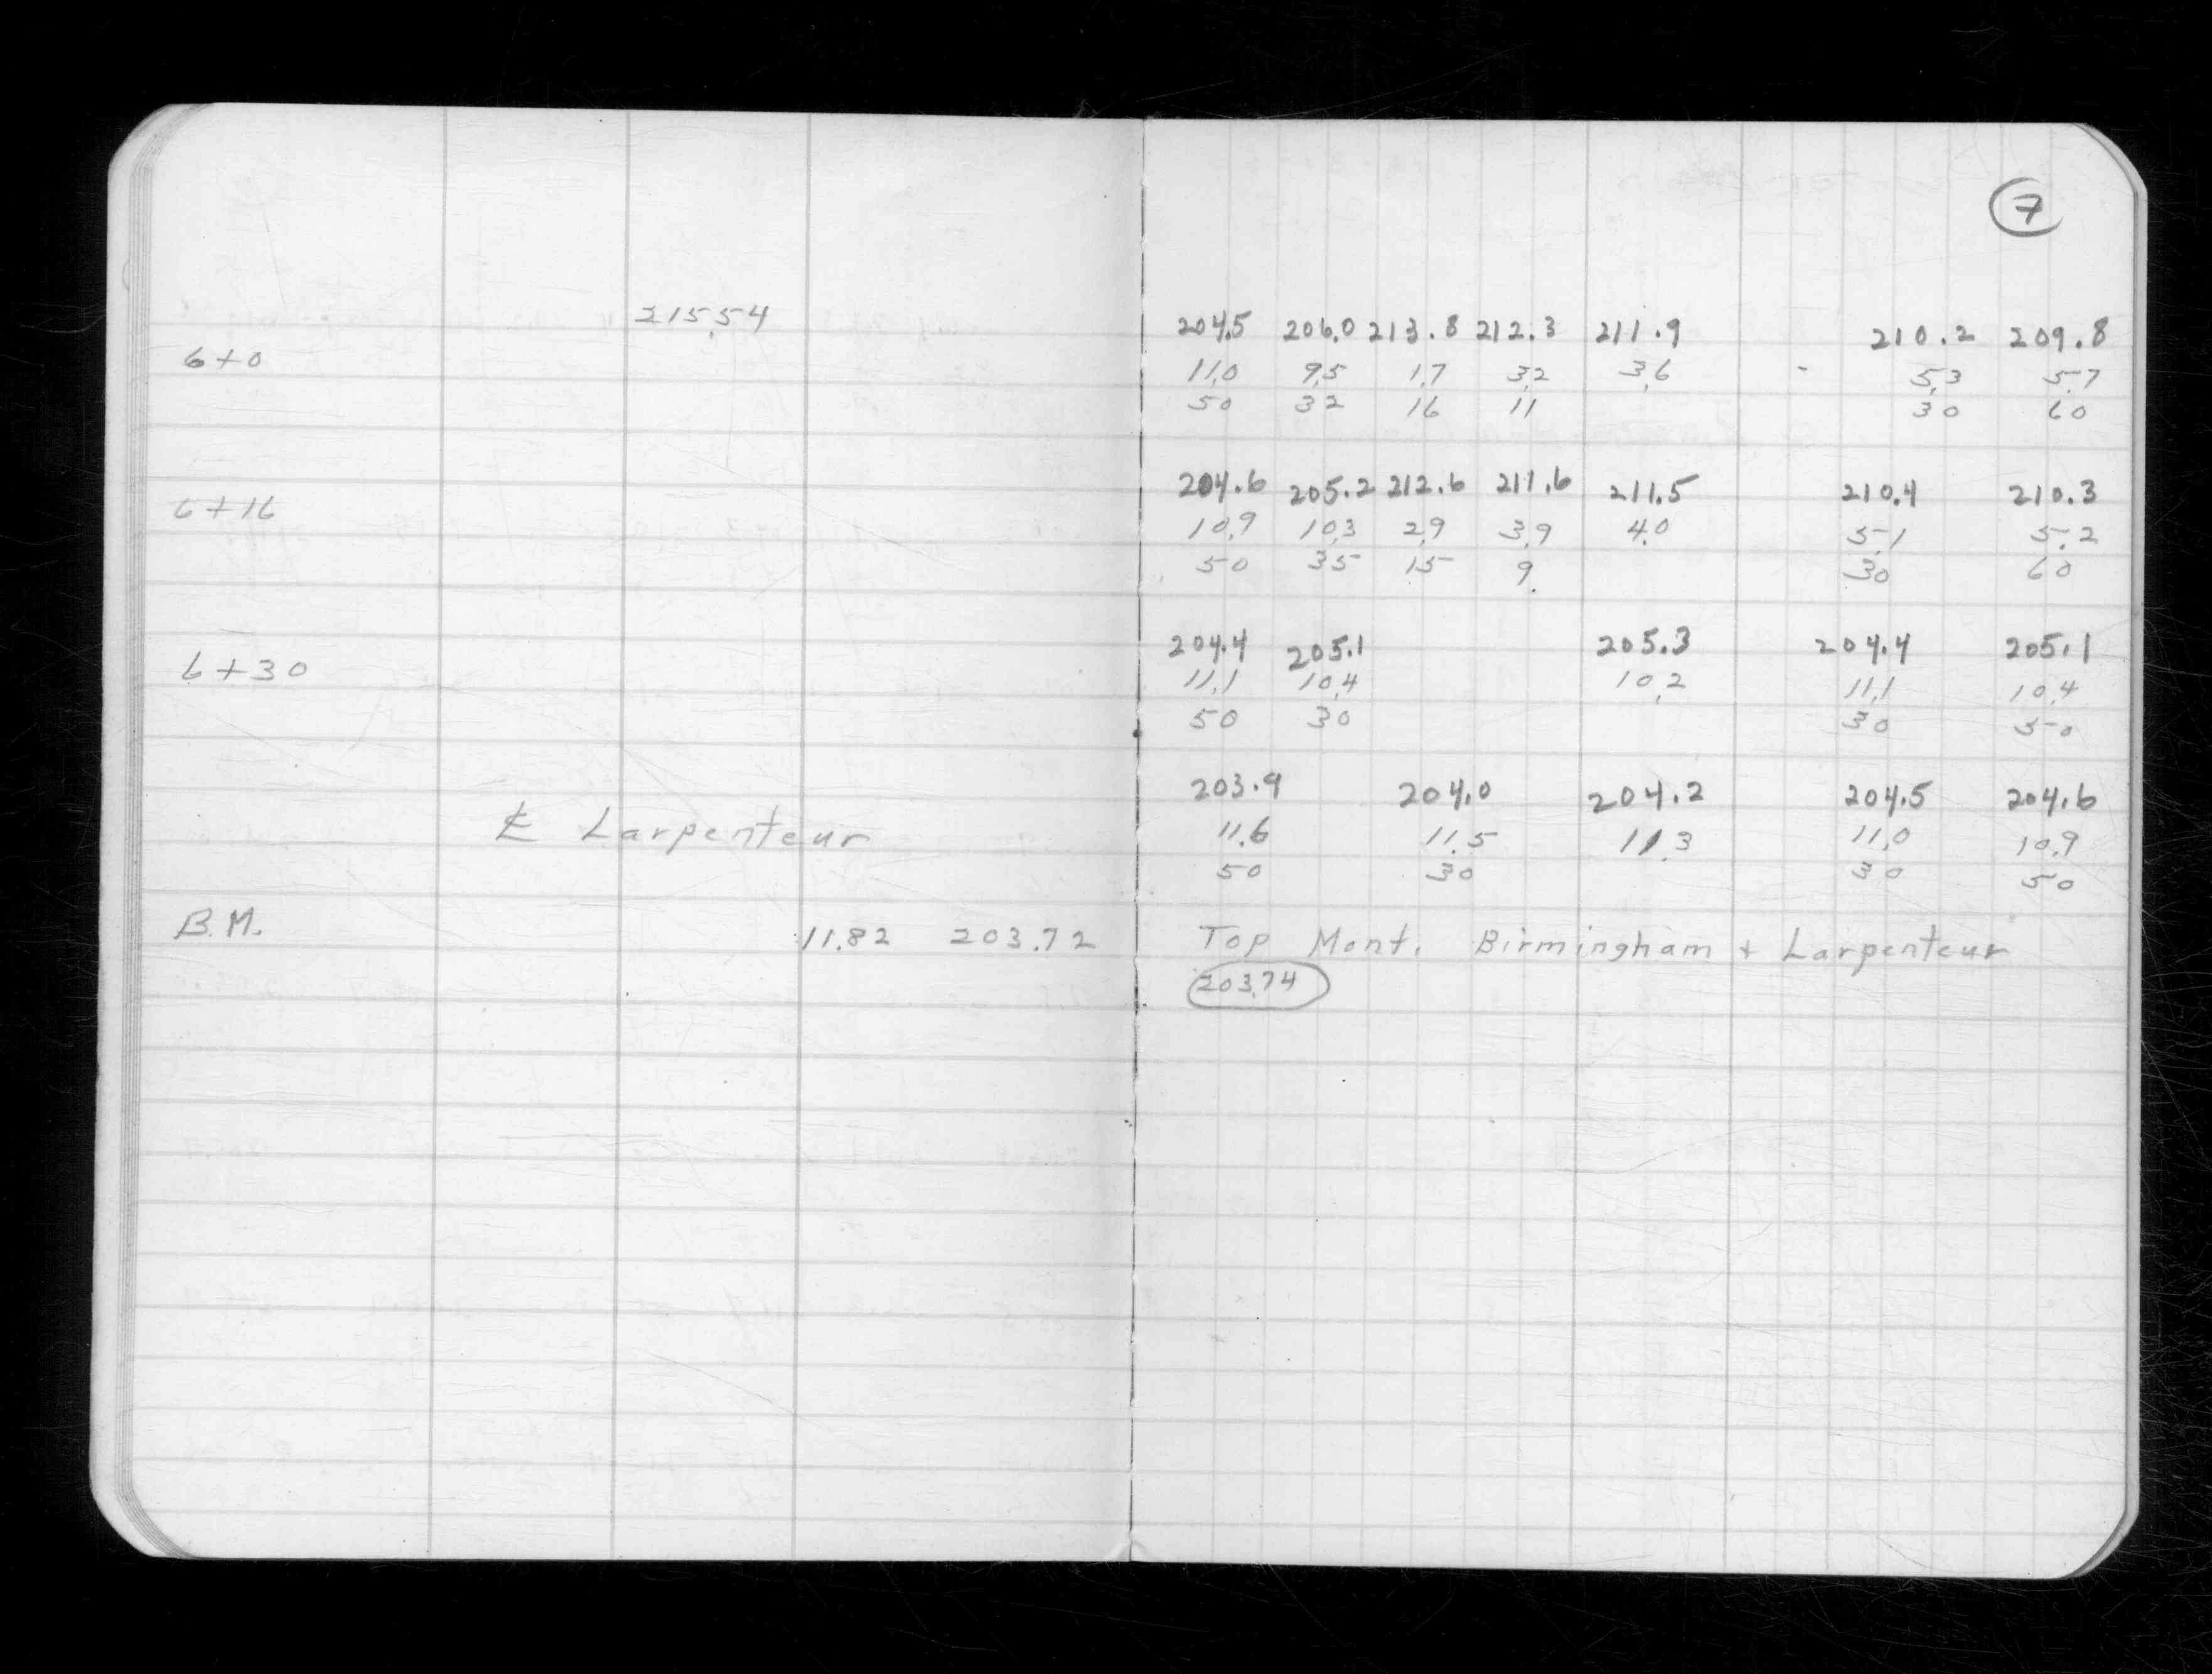 7
215.54
204.5 206.0 213.8 212.3 211.9 210.2 209.8
6+0
11.0 9.5 1.7 3.2 3.6 5.3 5.7
50 32 16 11 30 60
204.6 205.2 212.6 211.6 211.5 210.4 210.3
6+16
10.9 10.3 2.9 3.9 4.0 5.1 5.2
50 35 15 9 30 60
204.4 205.1 205.3 204.4 205.1
6+30
11.1 10.4 10.2 11.1 10.4
50 30 30 50
203.9 204.0 204.2 204.5 204.6
℄ Larpenteur
11.6 11.5 11.3 11.0 10.9
50 30 30 50
B.M. 11.82 203.72 Top Mont. Birmingham + Larpenteur
203.74